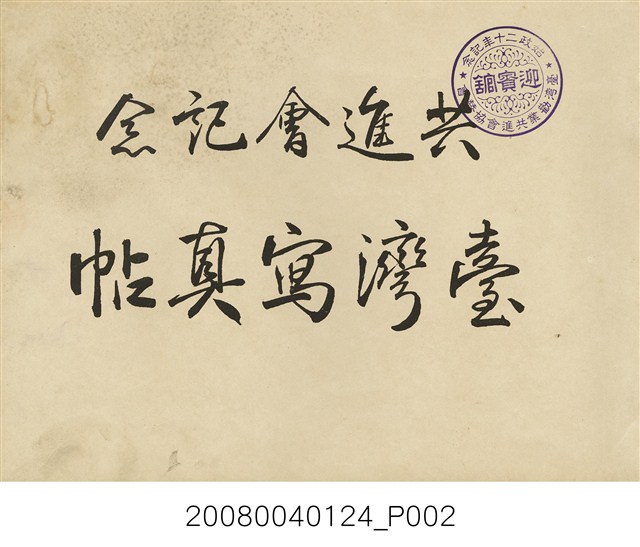 共進會記念
臺灣寫真帖
始政二十年記念
迎賓館
臺灣勸業共進會協賛會
20080040124_P002